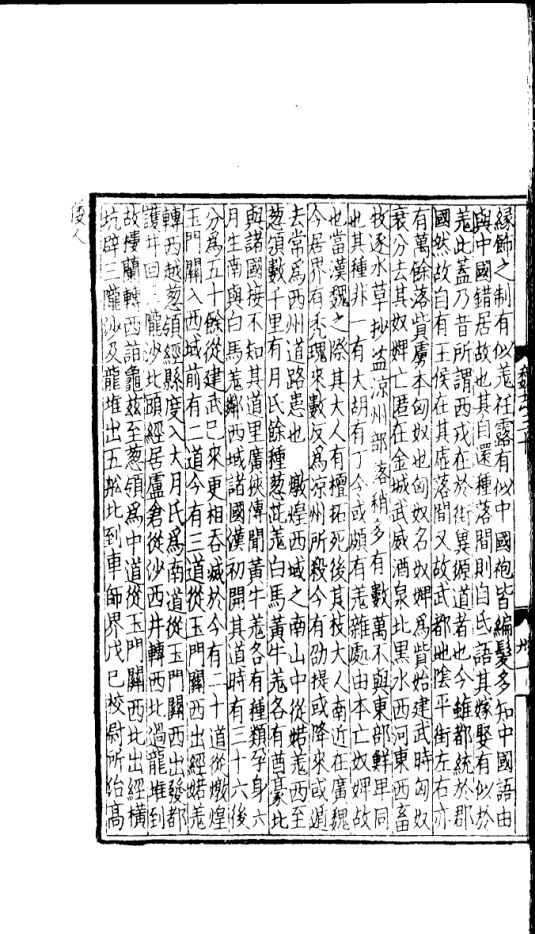 緣飾之制有似羌衽露有似中國袍皆編髮多知中國語由
與中國錯居故也其自還種落間則自氐語其嫁娶有似於
羌此蓋乃昔所謂西戎在於街異源道者也今雖都統於郡
國然故自有王侯在其虛落間又故武都地陰平街左右亦
有萬餘落貲虜本匈奴也匈奴名奴婢為貲始建武時匈奴
衰分去其奴婢亡匿在金城武威酒泉北黑水西河東西畜
牧逐水草抄盜涼州部落稍多有數萬不與東部鮮卑同
也其種非一有大胡有丁令或頗有羌雜處由本亡奴婢故
也當漢魏之際其大人有檀柘死後其枝大人南近在廣魏
今居界有禿瑰來數反為涼州所殺今有劭提或降來或遁
去常為西州道路患也 燉煌西域之南山中從婼羌西至
葱領數千里有月氏餘種葱茈羌白馬黃牛羌各有酋豪北
與諸國接不知其道里廣狹傳聞黃牛羌各有種類孕身六
月生南與白馬羌鄰西域諸國漢初開其道時有三十六後
分為五十餘從建武已來更相吞滅於今有二十道從燉煌
玉門關入西域前有二道今有三道從玉門關西出經婼羌
轉西越葱領經縣度入大月氏為南道從玉門關西出發都
護井回三隴沙北頭經居盧倉從沙西井轉西北過龍堆到
故樓蘭轉西詣龜茲至葱領為中道從玉門關西北出經橫
坑辟三隴沙及龍堆出五船北到車師界戊已校尉所治高
魏志三十
倭人